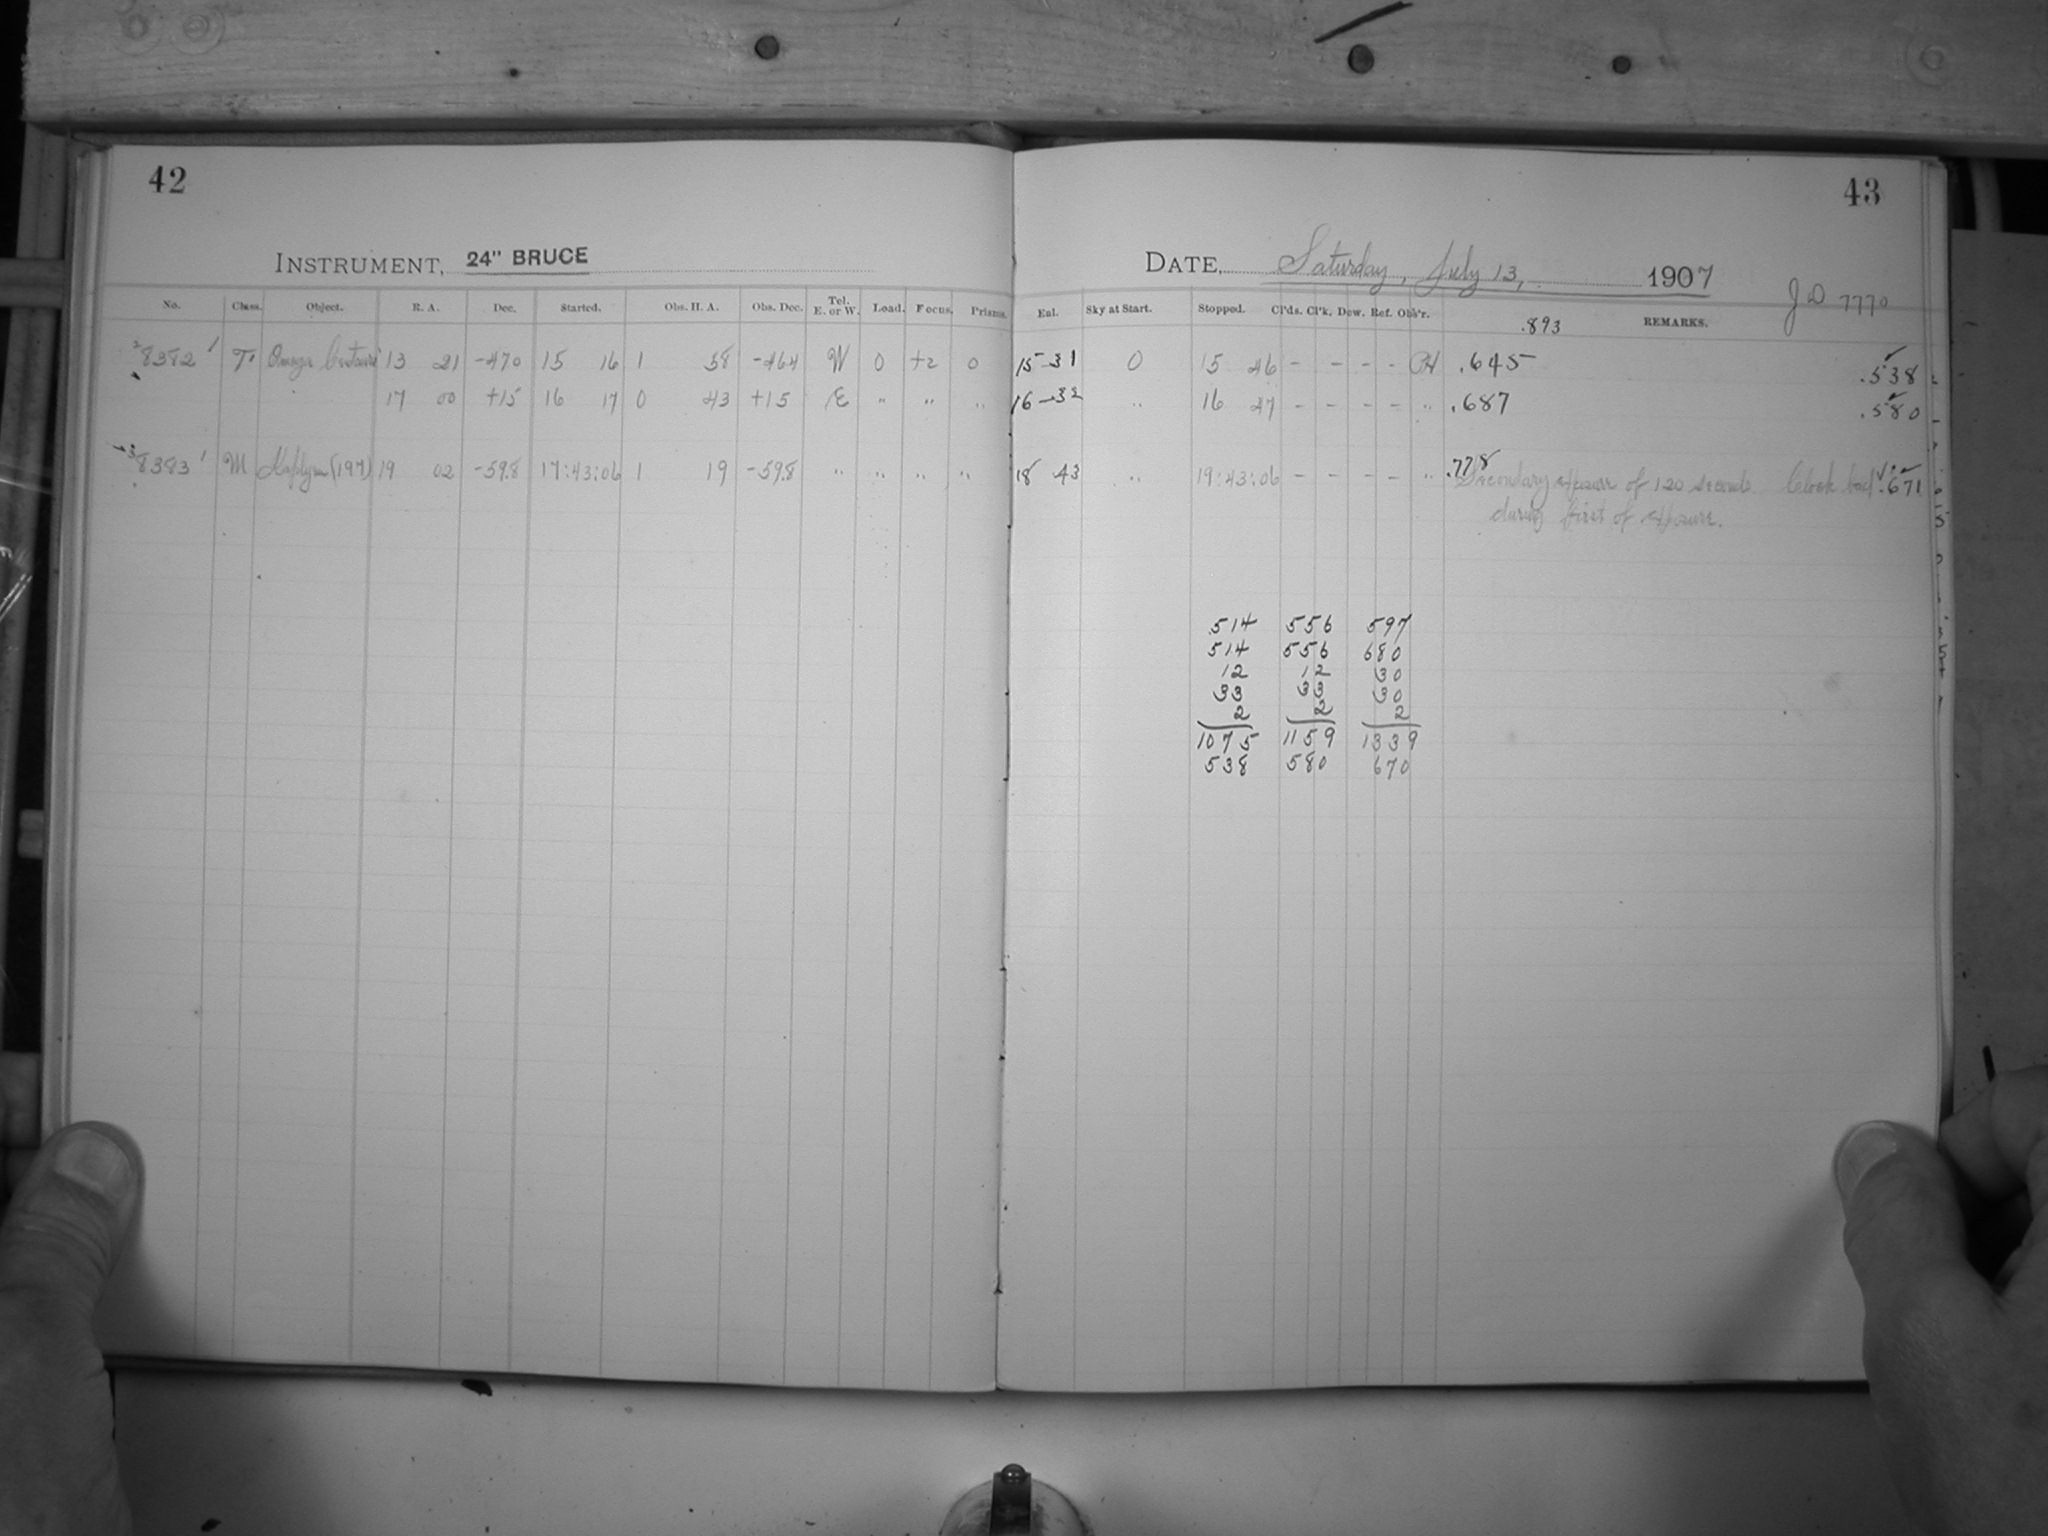 42
INSTRUMENT, 24" BRUCE
No. Class. Object. R. A. Dec. Started. Obs. H. A. Obs. Dec. Tel. E. or W. Load. Focus. Prisms.
8382 T Omega Centauri 13 21 -47.0 15 16 1 58 -46.4 W 0 +2 0
17 00 +15 16 17 0 43 +15 E " " "
8383 M (197) 19 02 -59.8 17:43:06 1 19 -59.8 " " " "
43
DATE, Saturday, July 13, 1907
JD 7770
Eal. Sky at Start. Stopped. Cl'ds. Cl'k. Dew. Ref. Obs'r. .893 REMARKS.
15-31 0 15 46 - - - - .645 .538
16-32 " 16 47 - - - - " .687 .580
18 43 " 19:43:06 - - - - " .778 Secondary exposure of 120 seconds Clock bad .671
during first of exposure.
514 556 597
514 556 680
12 12 30
33 33 30
2 2 2
1075 1159 1339
538 580 670